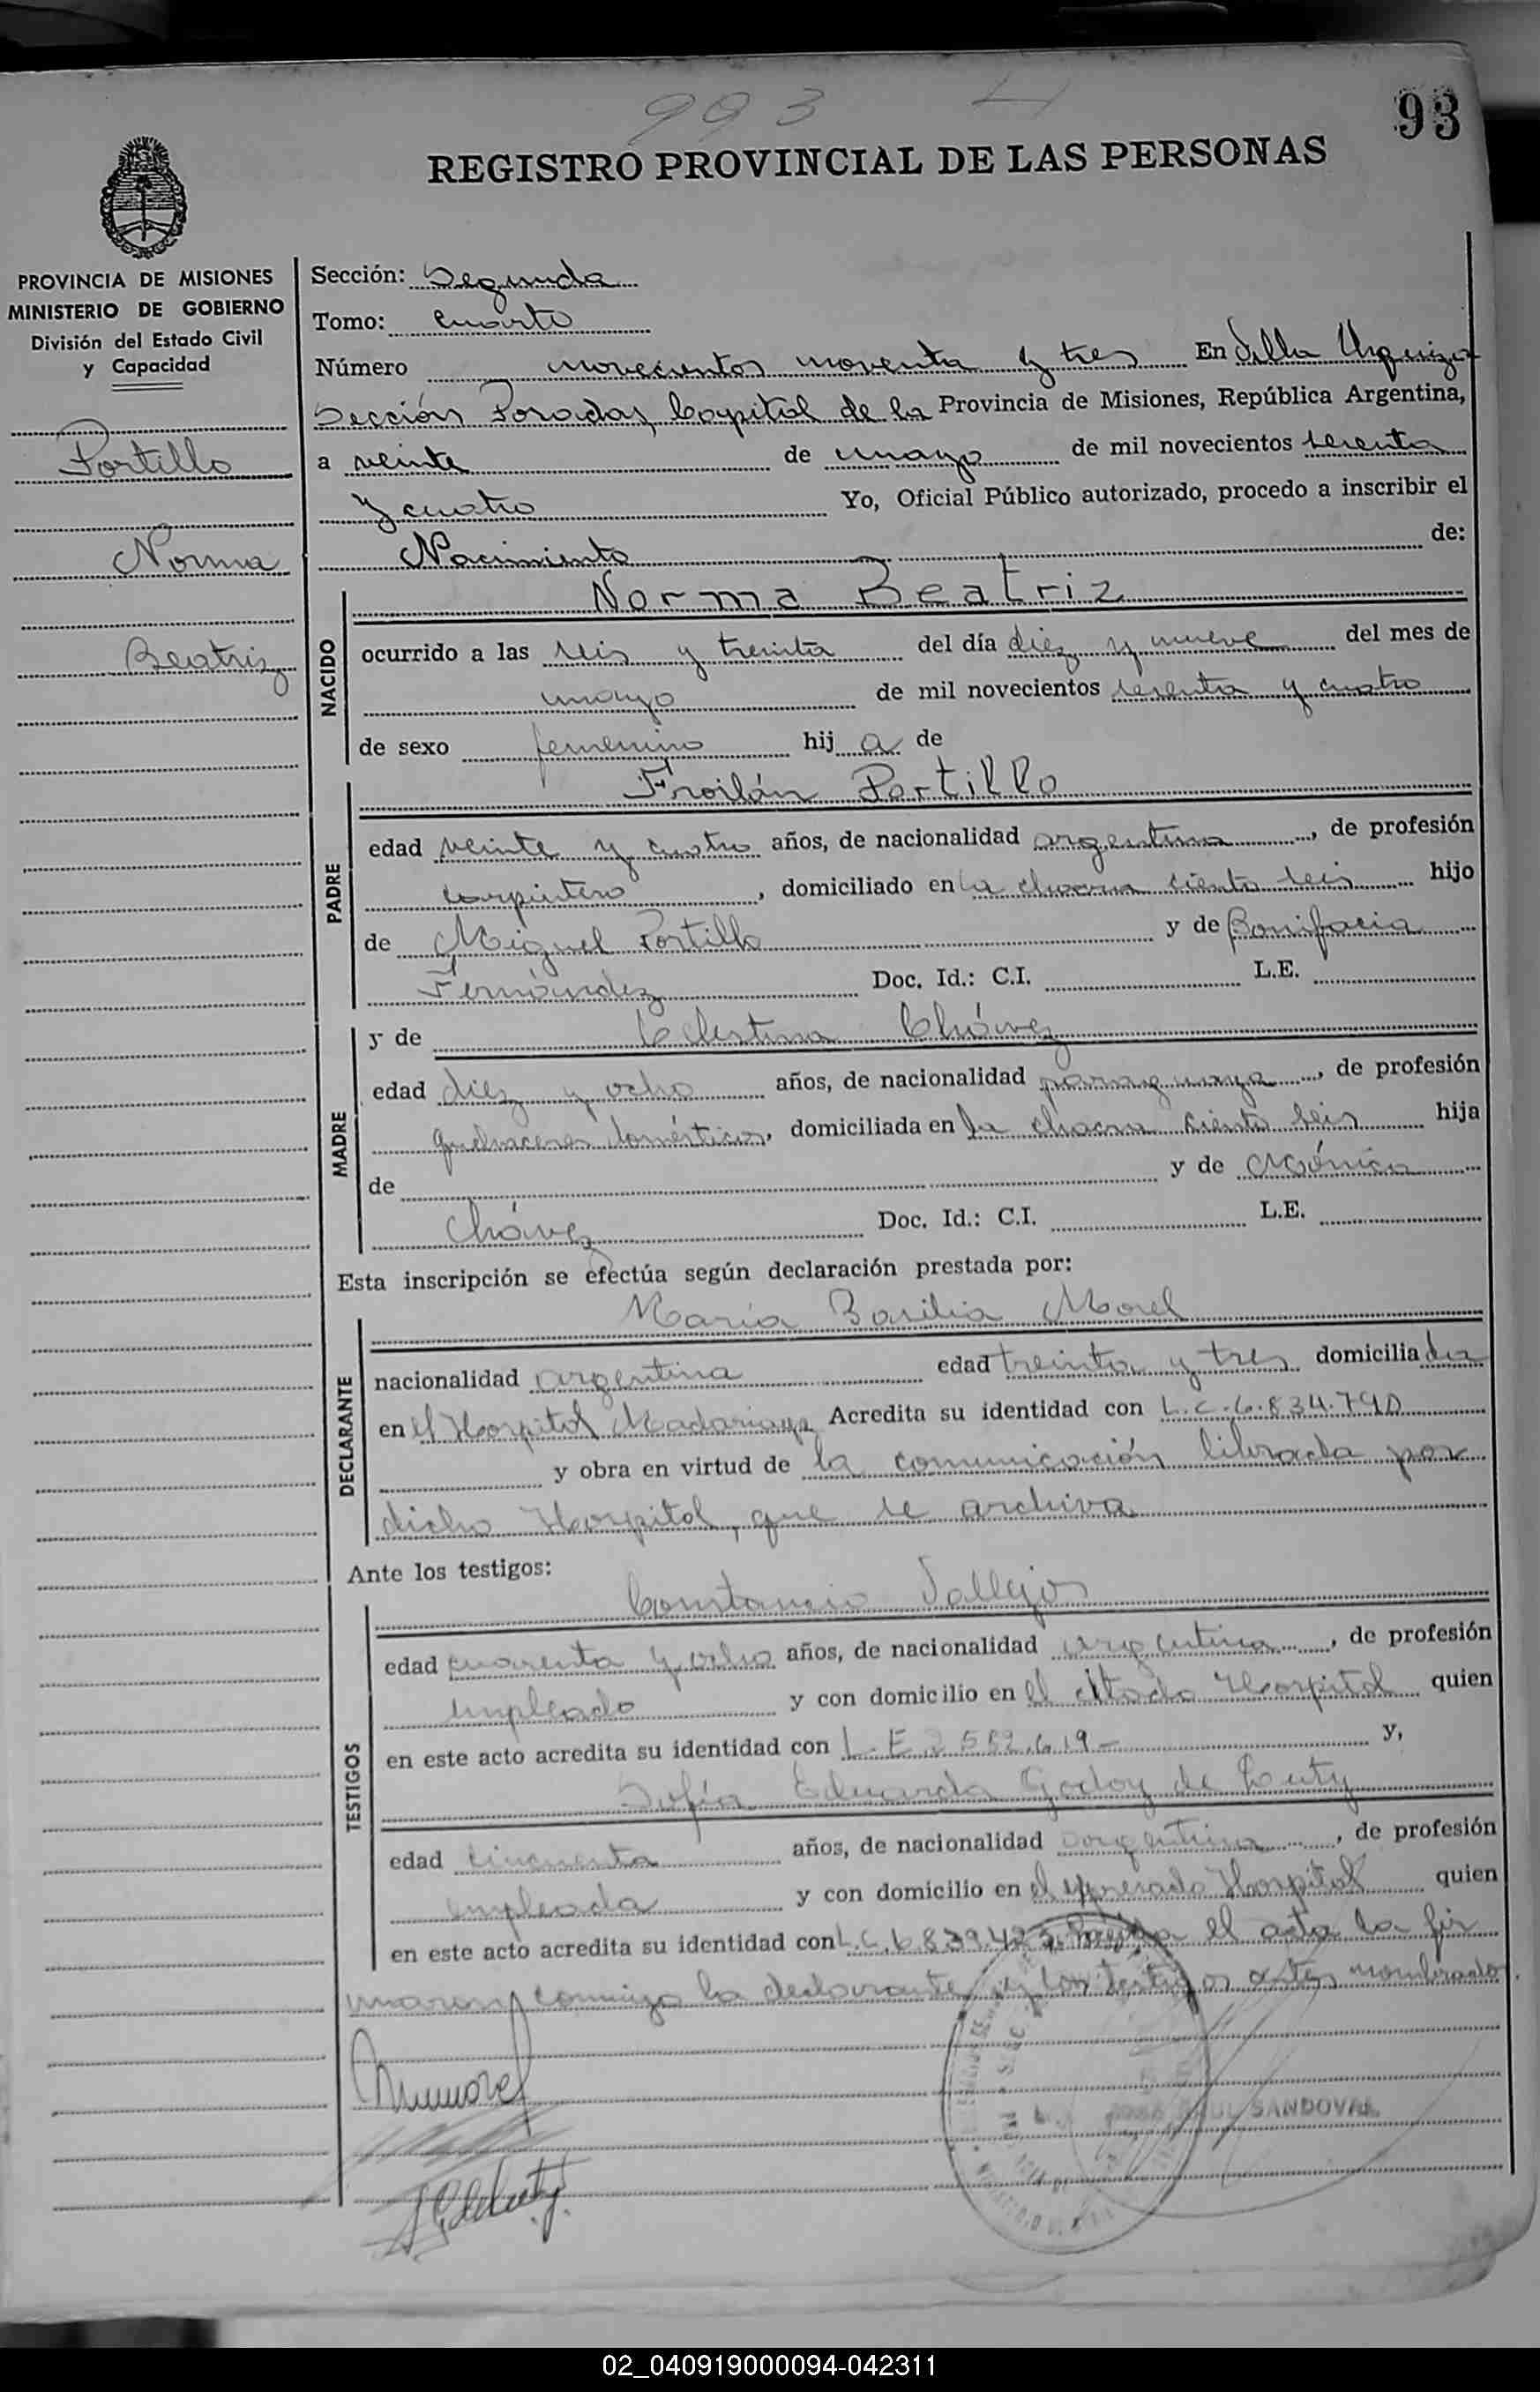 993
93
REGISTRO PROVINCIAL DE LAS PERSONAS
PROVINCIA DE MISIONES
MINISTERIO DE GOBIERNO
División del Estado Civil
y Capacidad
Portillo
Norma
Beatriz
Sección: Segunda
Tomo: cuarto
Número novecientos noventa y tres En Villa Urquiza
Sección Posadas, Capital de la Provincia de Misiones, República Argentina,
a veinte de mayo de mil novecientos sesenta
y cuatro Yo, Oficial Público autorizado, procedo a inscribir el
Nacimiento de:
NACIDO
Norma Beatriz
ocurrido a las seis y treinta del día diez y nueve del mes de
mayo de mil novecientos sesenta y cuatro
de sexo femenino hij a de
PADRE
Froilán Portillo
edad veinte y cuatro años, de nacionalidad argentina, de profesión
carpintero, domiciliado en la chacra ciento seis hijo
de Miguel Portillo y de Bonifacia
Fernández Doc. Id.: C.I. L.E.
MADRE
y de Celestina Chávez
edad diez y ocho años, de nacionalidad paraguaya, de profesión
quehaceres domésticos, domiciliada en la chacra ciento seis hija
de y de Mónica
Chávez Doc. Id.: C.I. L.E.
Esta inscripción se efectúa según declaración prestada por:
DECLARANTE
María Basilia Morel
nacionalidad argentina edad treinta y tres domicilia da
en el Hospital Madariaga Acredita su identidad con L.C. 6.834.790
y obra en virtud de la comunicación librada por
dicho Hospital, que se archiva
Ante los testigos:
TESTIGOS
Constancio Vallejos
edad cuarenta y ocho años, de nacionalidad argentina, de profesión
empleado y con domicilio en el citado Hospital quien
en este acto acredita su identidad con L.E 2.552.619- y,
Sofía Eduarda Godoy de Luty
edad cincuenta años, de nacionalidad argentina, de profesión
empleada y con domicilio en el expresado Hospital quien
en este acto acredita su identidad con L.C. 6.839.423. el acta la fir
maron conmigo la declarante y los testigos antes nombrados.
SANDOVAL
02_040919000094-042311